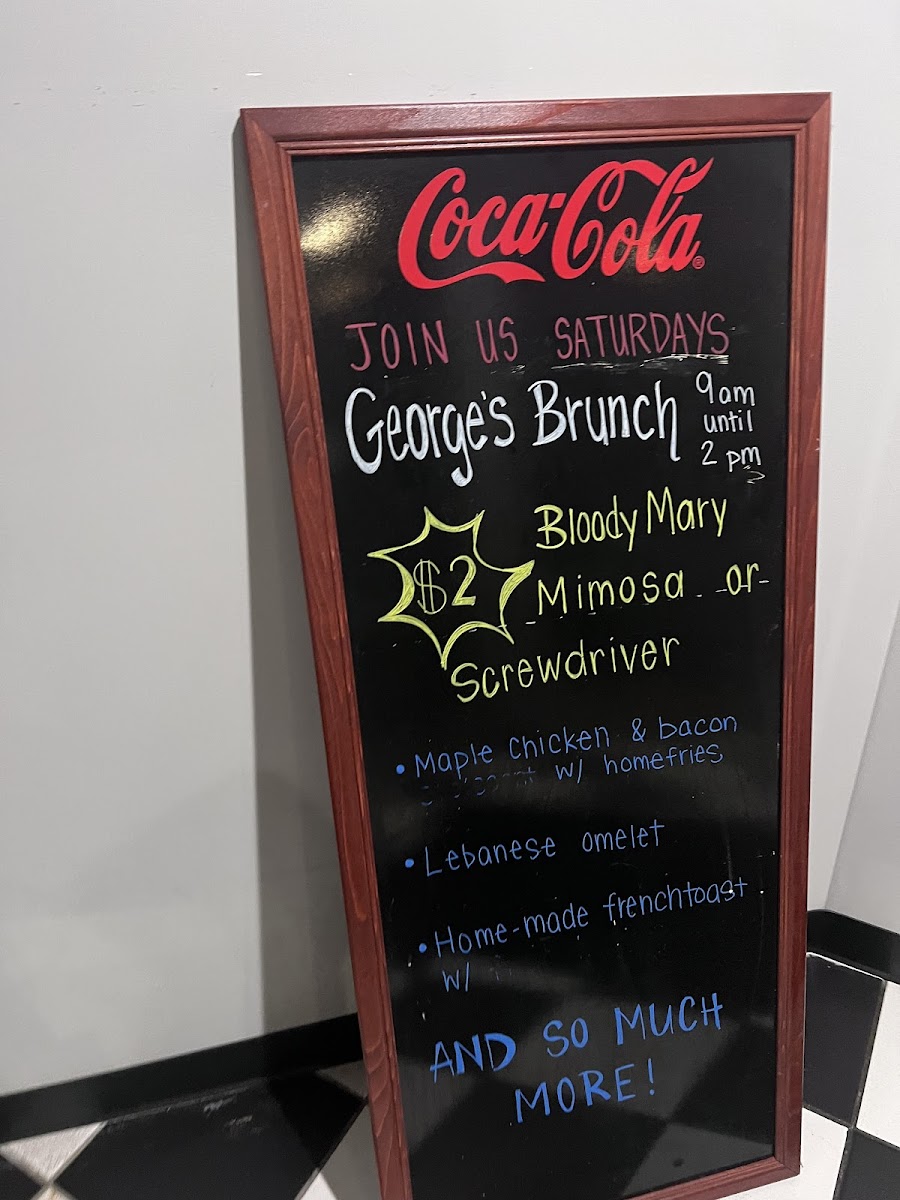 Coca-Cola®
JOIN US SATURDAYS
George's Brunch
9am
until
2 pm
$2
Bloody Mary
Mimosa or
Screwdriver
• Maple chicken & bacon
w/ homefries
• Lebanese omelet
• Home-made frenchtoast
w/
AND SO MUCH
MORE!